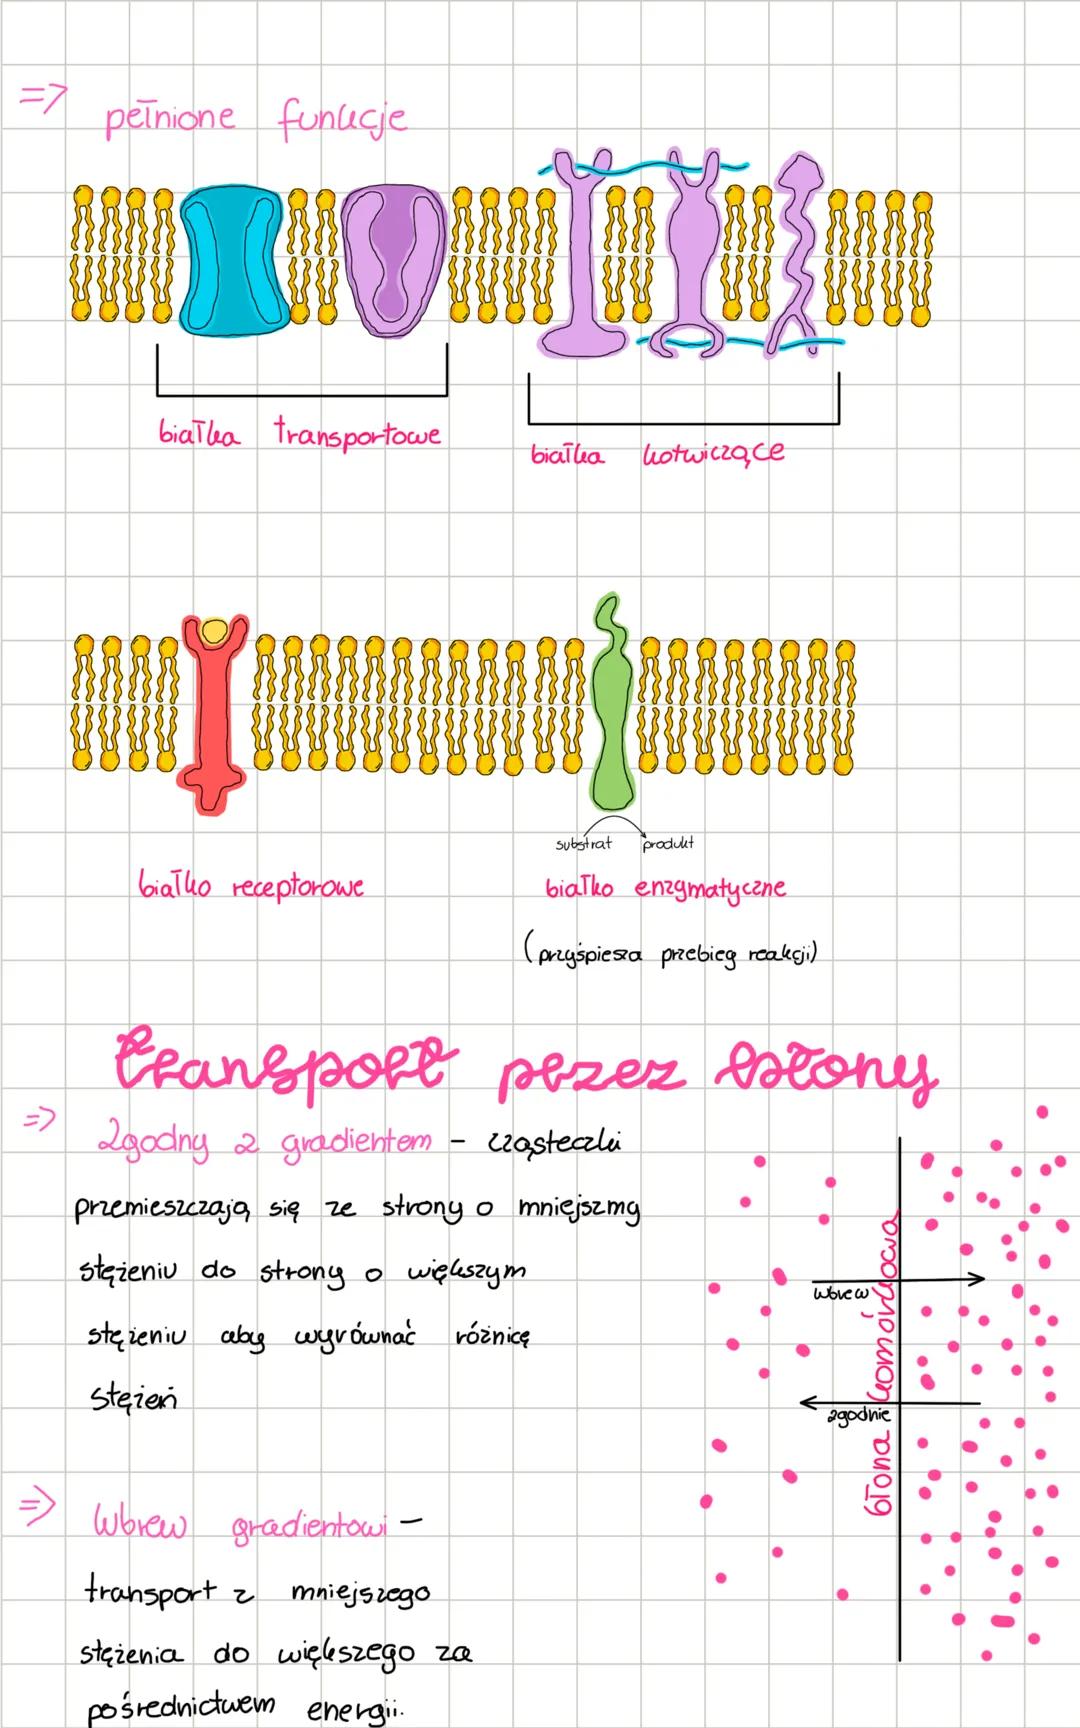 => pełnione funkcje
białka transportowe
białka kotwiczące
substrat produkt
białko receptorowe
białko enzymatyczne
(przyśpiesza przebieg reakcji)
transport przez błony
=> Zgodny z gradientem - cząsteczki
przemieszczają się ze strony o mniejszmy
stężeniu do strony o większym
stężeniu aby wyrównać różnicę
stężeń
wbrew
zgodnie
błona komórkowa
=> Wbrew gradientowi -
transport z mniejszego
stężenia do większego za
pośrednictwem energii.